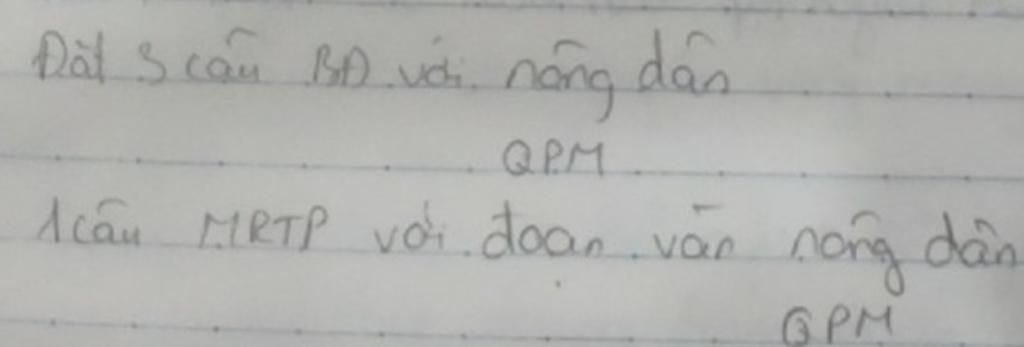 Đặt 3 câu BĐ với nông dân
QPM
1 câu MRTP với đoạn văn nông dân
QPM